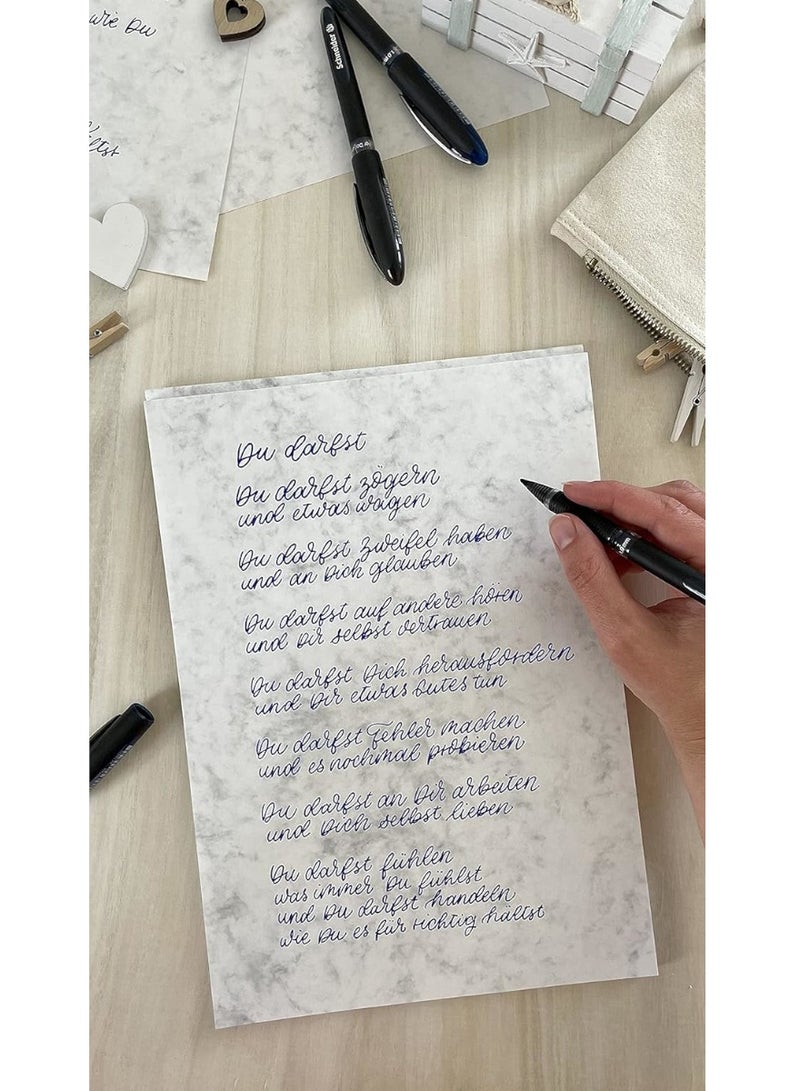 wie Du
Schneider
Du darfst
Du darfst zögern
und etwas wagen
Du darfst Zweifel haben
und an Dich glauben
Du darfst auf andere hören
und Dir selbst vertrauen
Du darfst Dich herausfordern
und Dir etwas Gutes tun
Du darfst Fehler machen
und es nochmal probieren
Du darfst an Dir arbeiten
und Dich selbst lieben
Du darfst fühlen
was immer Du fühlst
und Du darfst handeln
wie Du es für richtig hältst